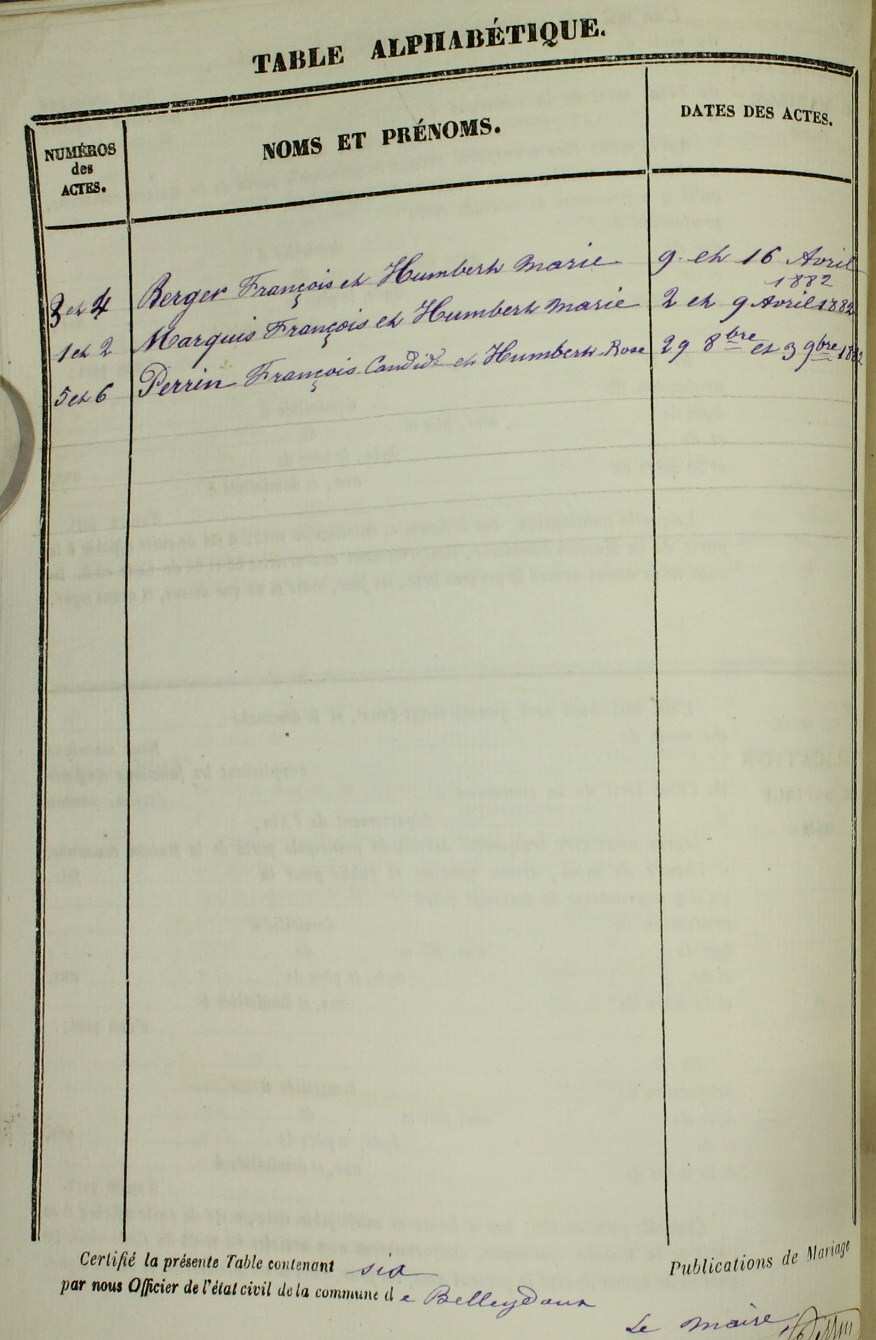 TABLE ALPHABÉTIQUE.
NUMÉROS des ACTES.
NOMS ET PRÉNOMS.
DATES DES ACTES.
3 et 4 Berger François et Humbert Marie 9 et 16 Avril 1882
1 et 2 Marquis François et Humbert Marie 2 et 9 Avril 1882
5 et 6 Perrin François Candide et Humbert Rose 29 8bre et 3 9bre 1882
Certifié la présente Table contenant six Publications de Mariage
par nous Officier de l'état civil de la commune de Belleydoux
Le Maire
Perrin